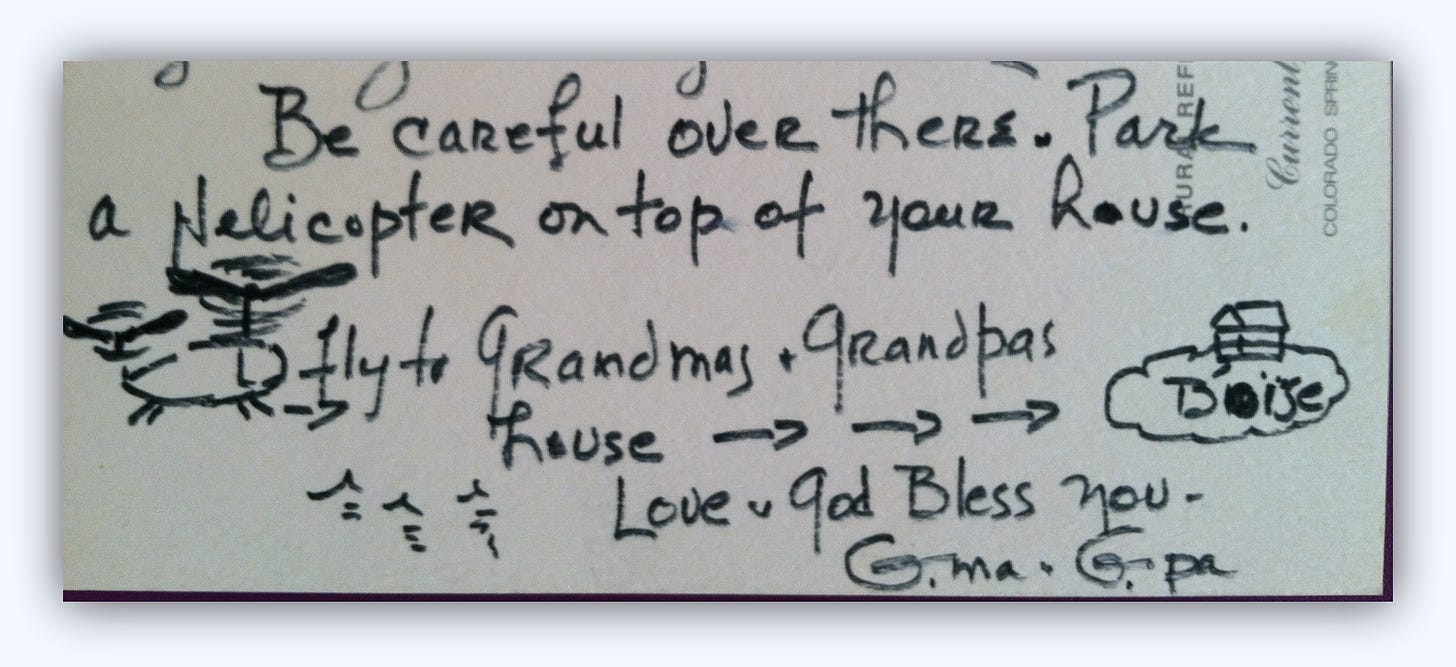 Be careful over there. Park
a Helicopter on top of your house.
fly to Grandmas + Grandpas
house → → →
Boise
Love + God Bless you -
G.ma + G.pa
Current
COLORADO SPRIN